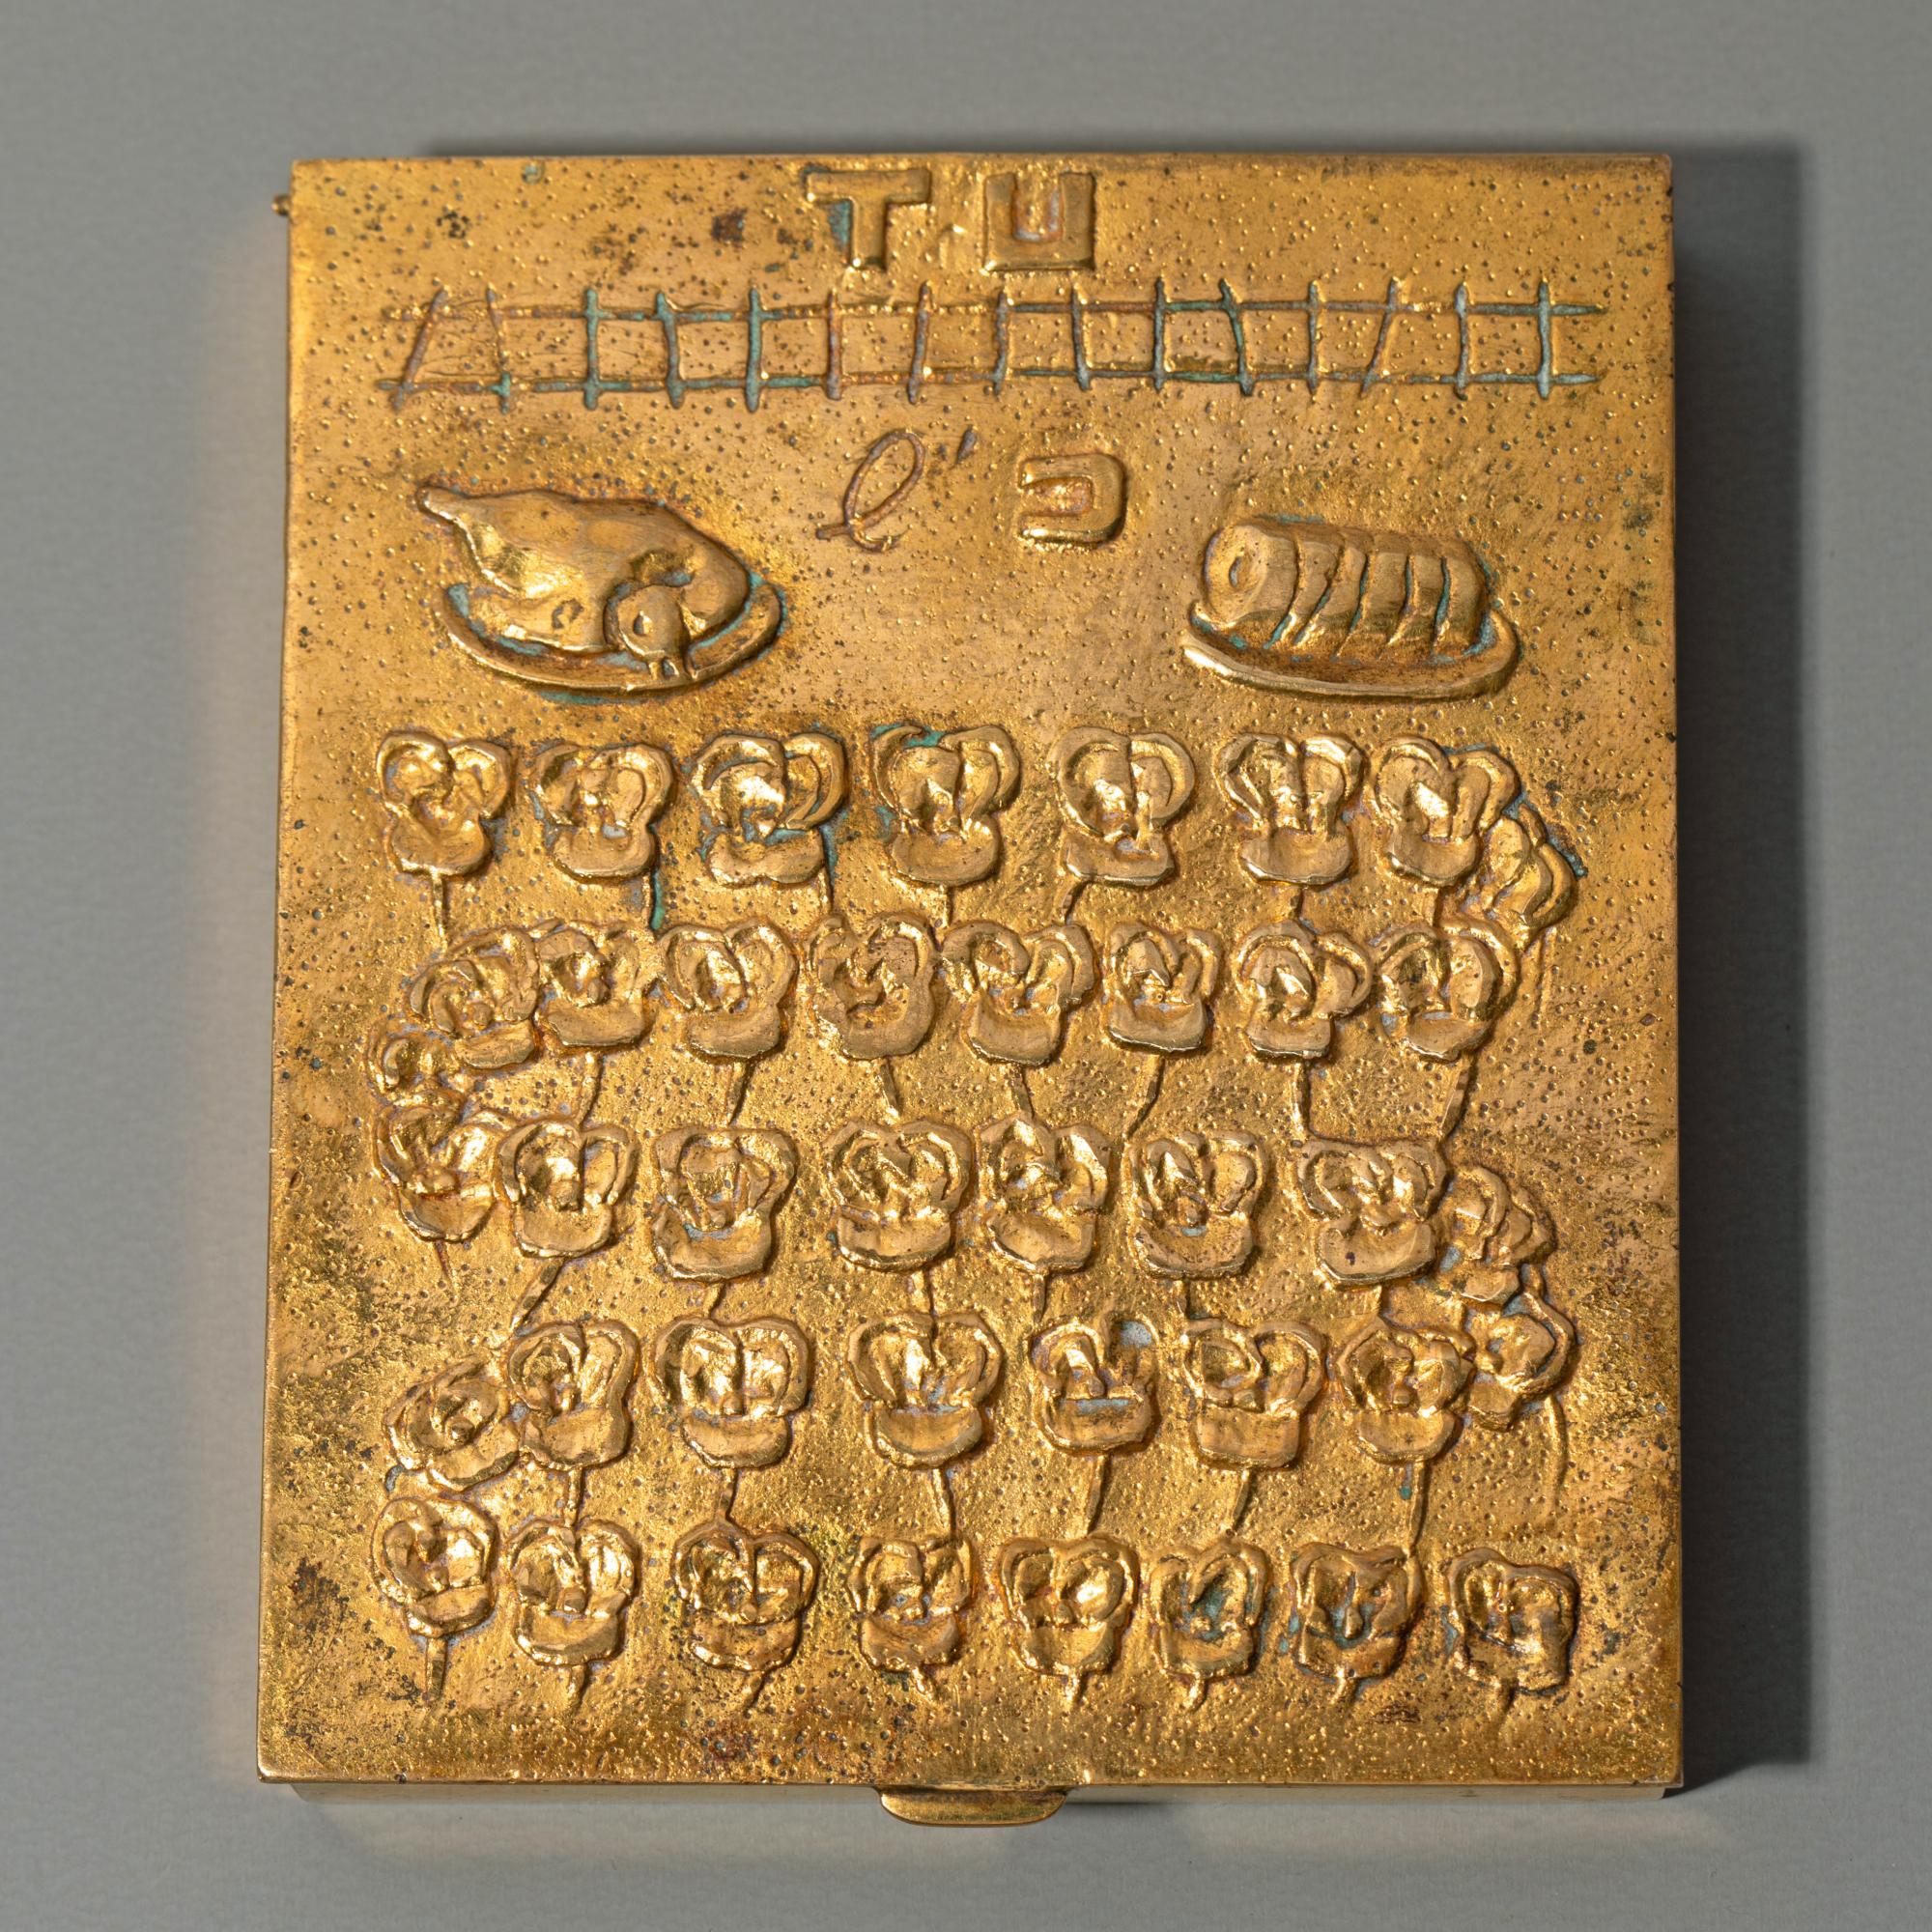 TU
l' U